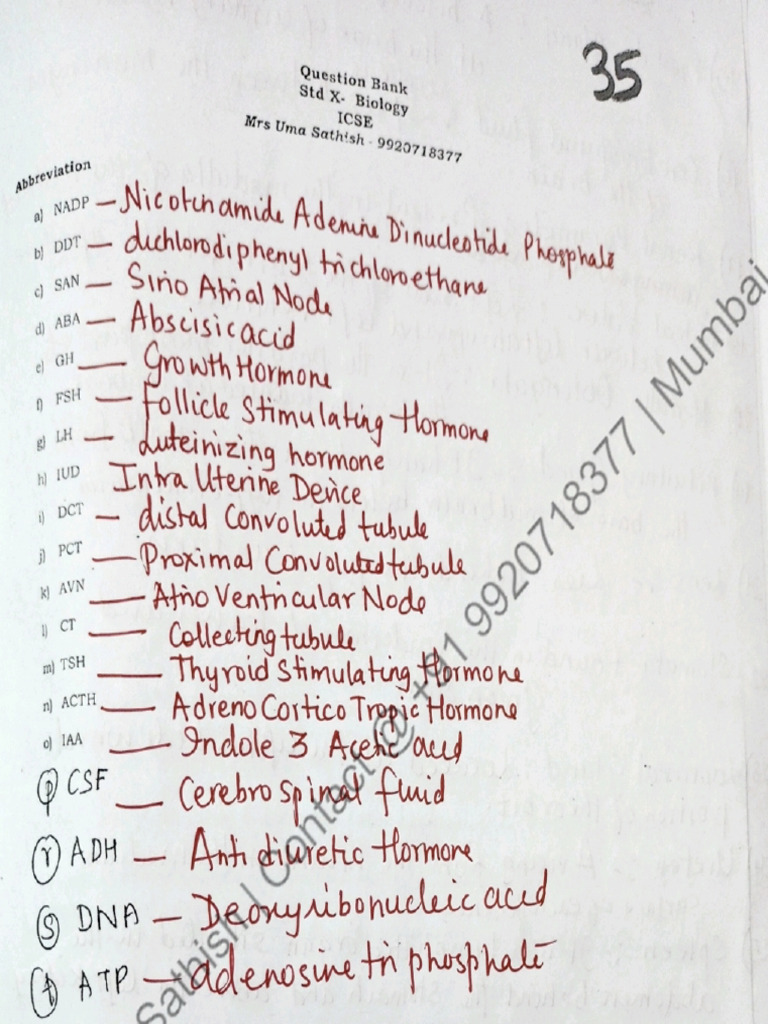 35
Question Bank
Std X- Biology
ICSE
Mrs Uma Sathish - 9920718377
Abbreviation
a) NADP — Nicotinamide Adenine Dinucleotide Phosphate
b) DDT — dichlorodiphenyl trichloroethane
c) SAN — Sino Atrial Node
d) ABA — Abscisic acid
e) GH — Growth Hormone
f) FSH — Follicle Stimulating Hormone
g) LH — Luteinizing hormone
h) IUD Intra Uterine Device
i) DCT — distal Convoluted tubule
j) PCT — Proximal Convoluted tubule
k) AVN — Atrio Ventricular Node
l) CT — Collecting tubule
m) TSH — Thyroid Stimulating Hormone
n) ACTH — Adreno Cortico Tropic Hormone
o) IAA — Indole 3 Acetic acid
p) CSF — Cerebro Spinal fluid
r) ADH — Anti diuretic Hormone
s) DNA — Deoxyribonucleic acid
t) ATP — adenosine tri phosphate
Sathish | Contact @ +91 9920718377 | Mumbai